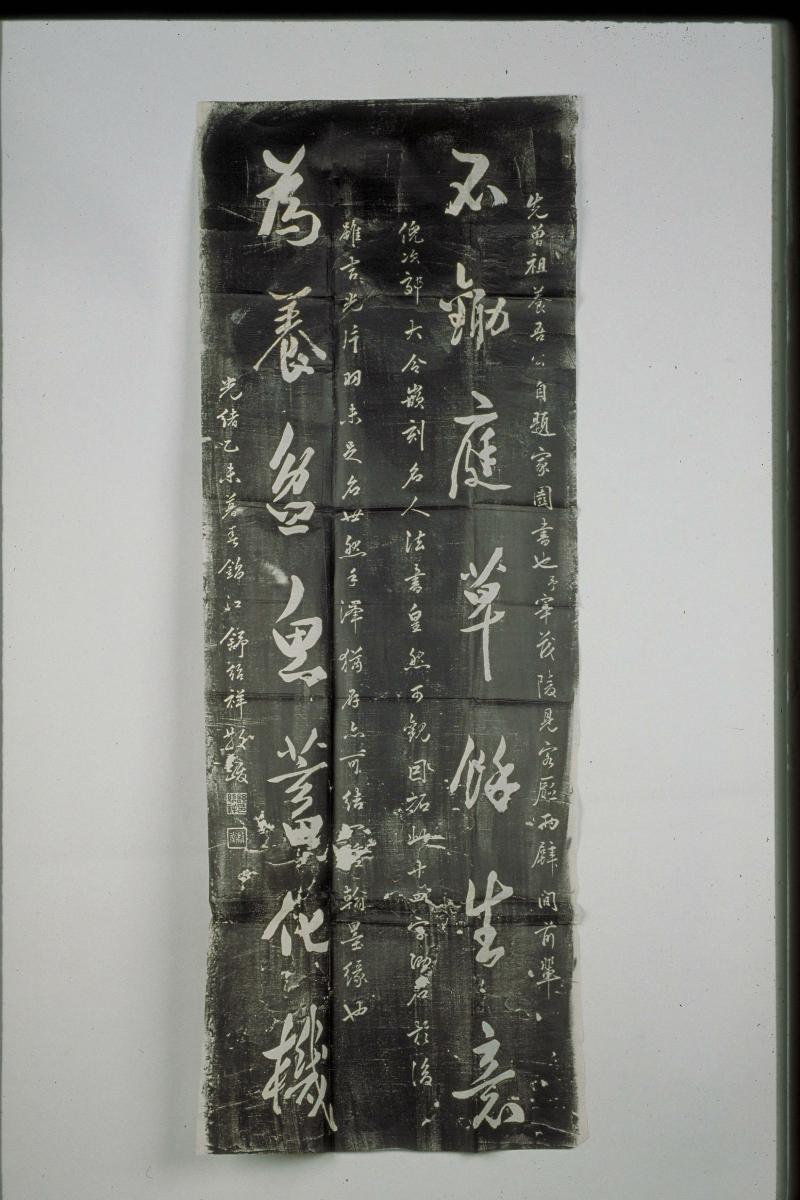 先曾祖養吾公自題家園書也予宰茂陵見客廳兩壁間前輩
不鋤庭草餘生意
倪次郊大令嵌刻名人法書皇然可觀因拓此十四字泐石於後
雖吉光片羽未足名世然手澤猶存亦可結翰墨緣也
為養盆魚蓄化機
光緒乙未暮春錦江舒紹祥敬跋